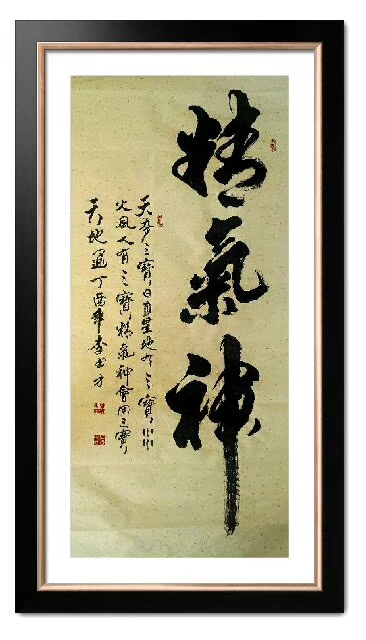 精氣神
天有三寶日月星地有三寶水
火風人有三寶精氣神會合三寶
天地通丁酉年李